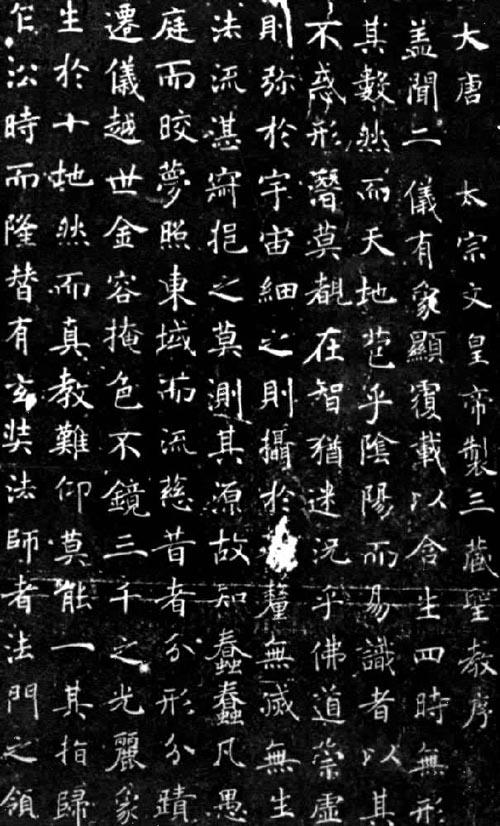 大唐 太宗文皇帝製三藏聖教序
盖聞二儀有象顯覆載以含生四時無形
其數然而天地苞乎陰陽而易識者以其
不惑形潛莫覩在智猶迷況乎佛道崇虛
則弥於宇宙細之則攝於釐無滅無生
法流湛寂挹之莫測其源故知蠢蠢凡愚
庭而皎夢照東域而流慈昔者分形分蹟
遷儀越世金容掩色不鏡三千之光麗象
生於十地然而真教難仰莫能一其指歸
乍沿時而隆替有玄奘法師者法門之領